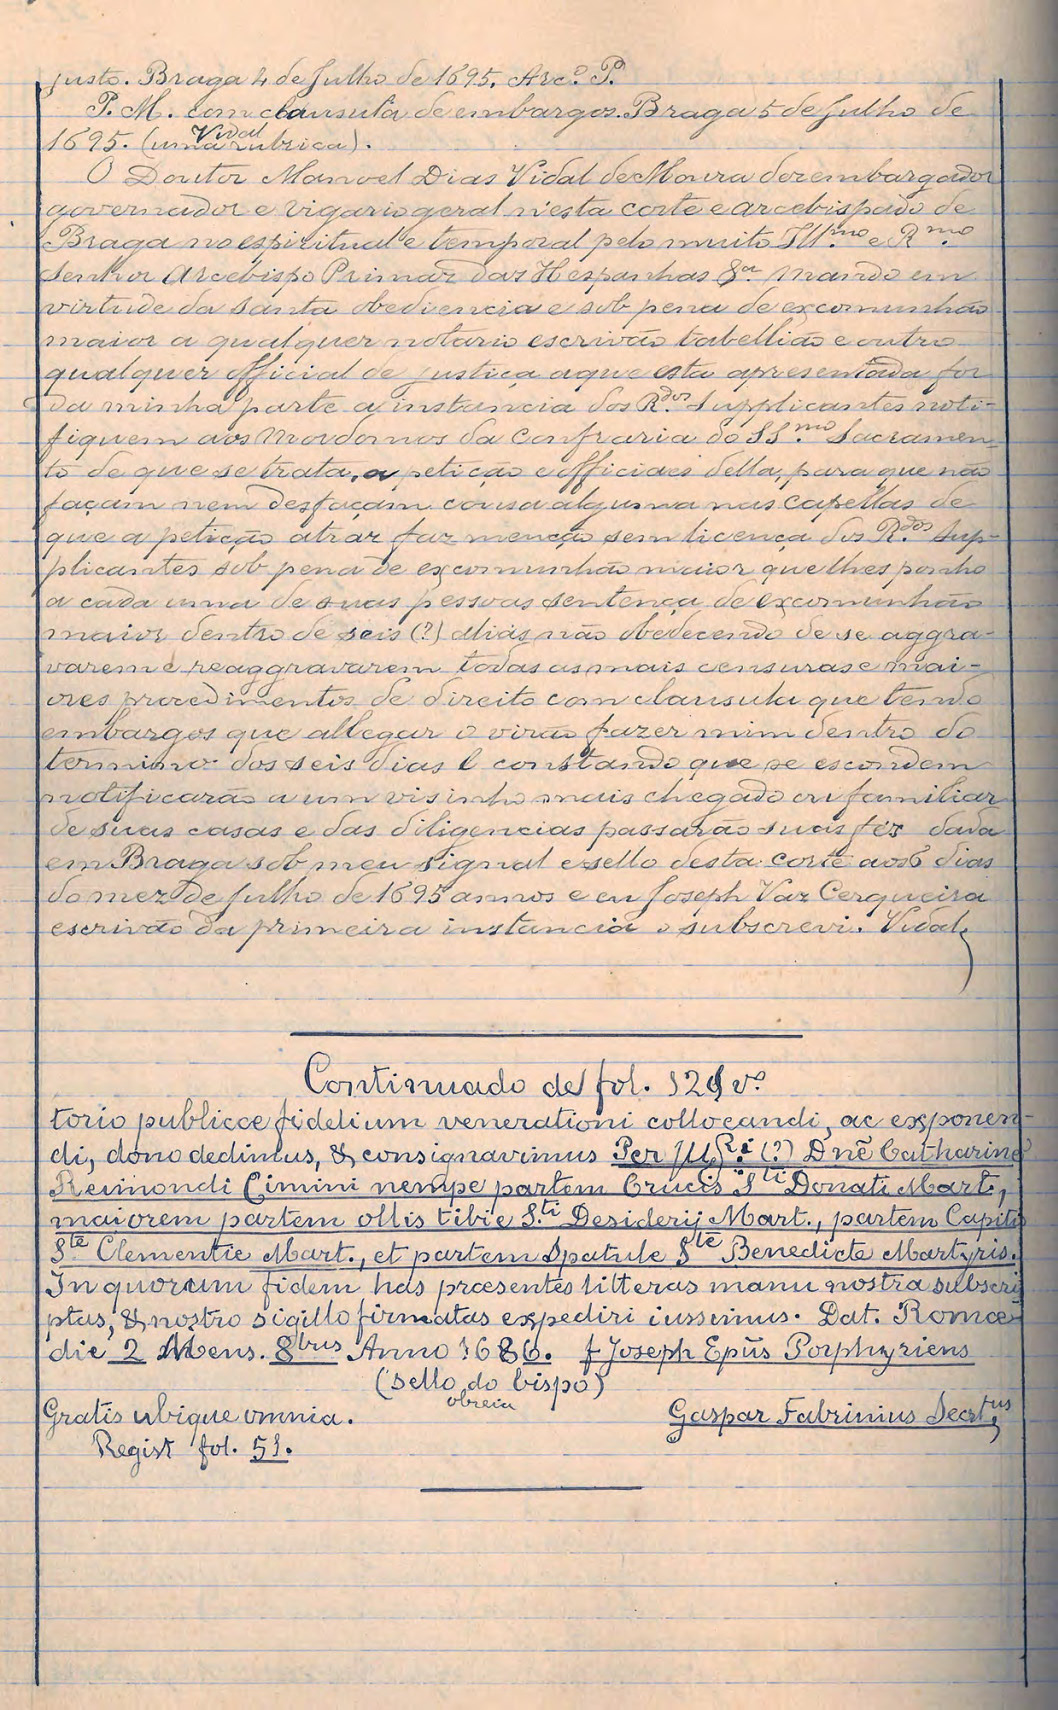 justo. Braga 4 de Julho de 1695. Arc.º P.
P. M. com clausula de embargos. Braga 5 de Julho de
Vidal
1695. (uma rubrica).
O Doutor Manoel Dias Vidal de Moura dezembargador
governador e vigario geral n'esta corte e arcebispado de
Braga no espiritual e temporal pelo muito Ill.mo e R.mo
Senhor Arcebispo Primaz das Hespanhas &a. Mando em
virtude da santa obediencia e sob pena de excomunhão
maior a qualquer notario escrivão tabellião e outro
qualquer official de justiça a que esta apresentada for
da minha parte a instancia dos R.dos Supplicantes noti-
fiquem aos Mordomos da Confraria do SS.mo Sacramen
to de que se trata, a petição e officiaes della, para que não
façam nem desfaçam cousa alguma nas capellas de
que a petição atraz faz menção sem licença dos R.dos Sup-
plicantes sob pena de excomunhão maior que lhes ponho
a cada uma de suas pessoas sentença de excomunhão
maior dentro de seis (?) aliás não obedecendo de se aggra-
varem e reaggravarem todas as mais censuras e mai-
ores procedimentos de direito com clausula que tendo
embargos que allegar o virão fazer mim dentro do
termino dos seis dias e constando que se escondem
notificarão a um visinho mais chegado ou familiar
de suas casas e das diligencias passarão suas fés dada
em Braga sob meu signal e sello desta corte aos 6 dias
do mez de Julho de 1695 annos e eu Joseph Vaz Cerqueira
escrivão da primeira instancia o subscrevi. Vidal,
Continuado de fol. 121 v.º
torio publicæ fidelium venerationi collocandi, ac exponen-
di, dono dedimus, & consignavimus Per Ill.ri (?) Dnē Catharine
Reimondi Cimini nempe partem Crucis Sti Donati Mart.,
maiorem partem ossis tibie S.ti Desiderij Mart., partem Capitis
Ste Clementie Mart., et partem Spatule Ste Benedicte Martyris.
In quorum fidem has præsentes litteras manu nostra subscri
ptas, & nostro sigillo firmatas expediri iussimus. Dat. Romæ
die 2 Mens. 8bris Anno 1686. † Joseph Epũs Porphyriens
(sello do bispo)
obreia
Gratis ubique omnia. Gaspar Fabrinius Secrt.us
Regist fol. 51.